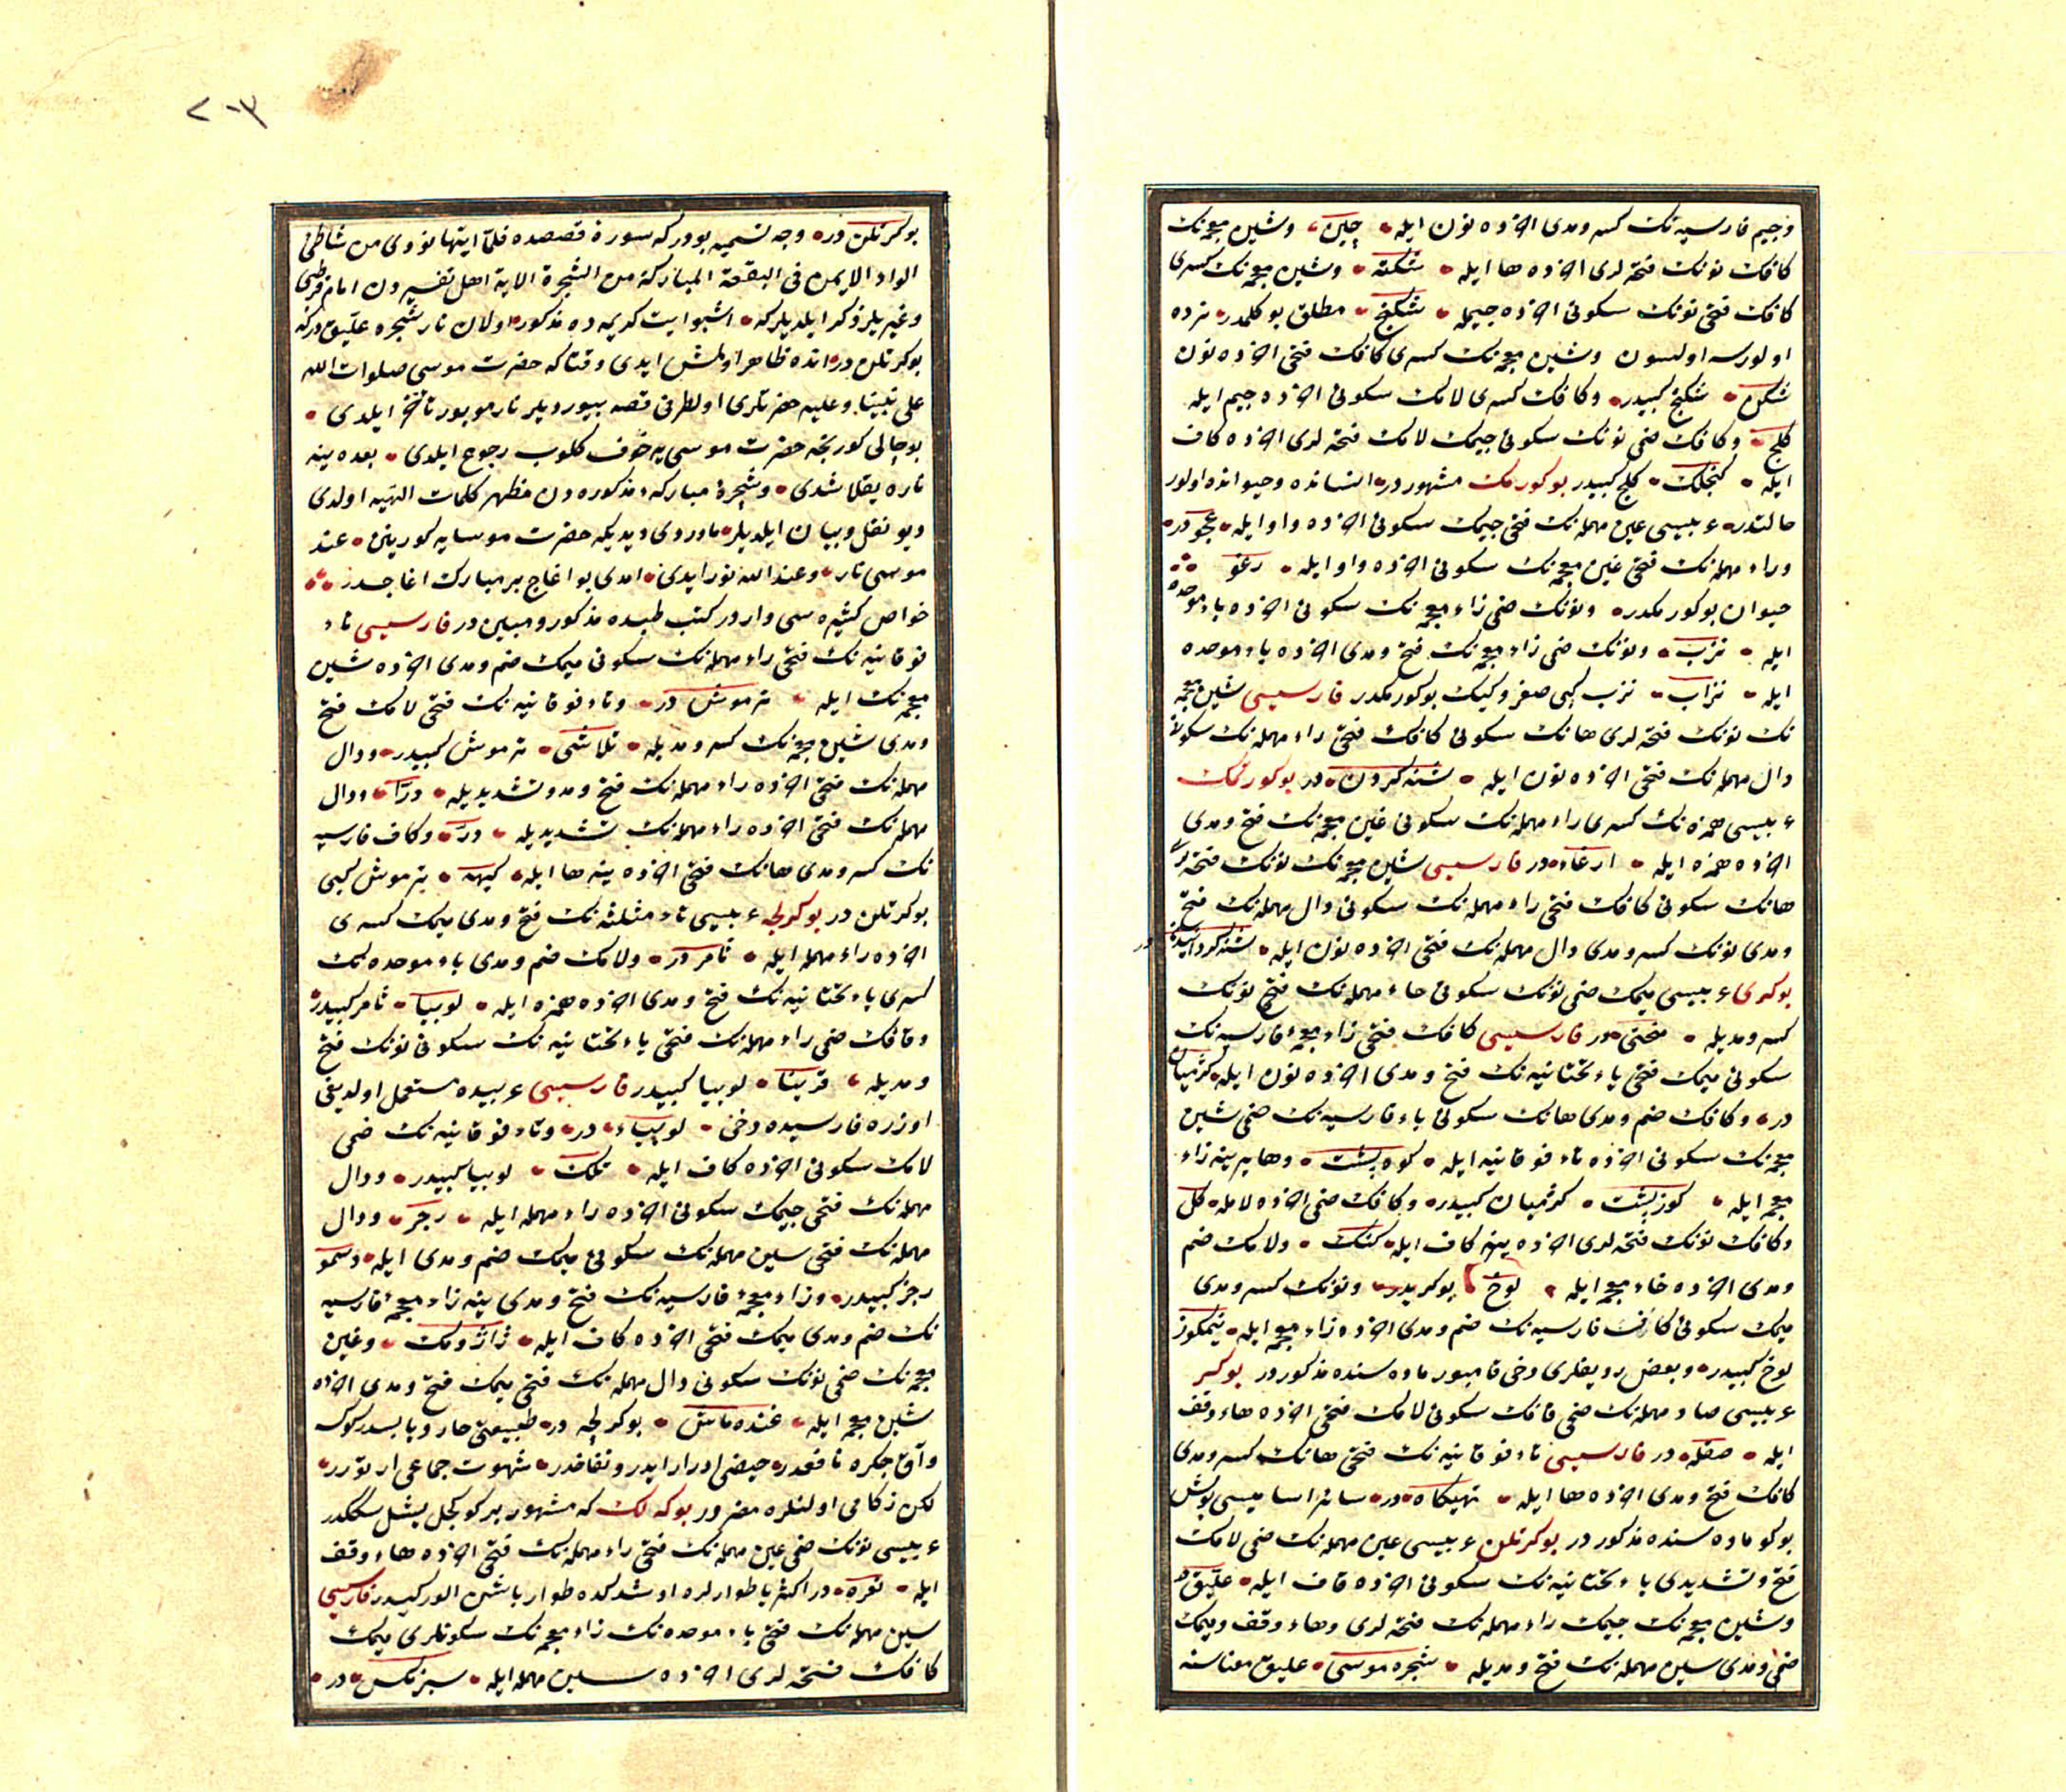 وجيم فارسيه نك كسر ومدى اخرده نون ايله چين وشين معجمه نك
كافك نونك فتحه لرى اخرده ها ايله شكنه وشين معجمه نك كسرى
كافك فتحى نونك سكونى اخرده جيمله شكنج مطلق بوكلمدر نرده
اولورسه اولسون وشين معجمه نك كسرى كافك فتحى اخرده نون
شكن شكنج كبيدر وكافك كسرى لامك سكونى اخرده جيم ايله
كلج وكافك ضمى نونك سكونى جيمك لامك فتحه لرى اخرده كاف
ايله كنجلك كلج كبيدر بوكورمك مشهوردر انسانده وحيوانده اولور
حالتدر عربيسى عين مهمله نك فتحى جيمك سكونى اخرده واو ايله عجودر
وراء مهمله نك فتحى غين معجمه نك سكونى اخرده واو ايله رغو
حيوان بوكورمكدر ونونك ضمى زاء معجمه نك سكونى اخرده باء موحده
ايله نزب ونونك ضمى زاء معجمه نك فتح ومدى اخرده باء موحده
ايله نزاب نزب كبى صغر وكيك بوكورمكدر فارسيسى شين معجمه
نك نونك فتحه لرى هانك سكونى كافك فتحى راء مهمله نك سكونى
دال مهمله نك فتحى اخرده نون ايله شنه كردن در بوكورتمك
عربيسى همزه نك كسرى راء مهمله نك سكونى غين معجمه نك فتح ومدى
اخرده همزه ايله ارغاء در فارسيسى شين معجمه نك نونك فتحه لرى
هانك سكونى كافك فتحى راء مهمله نك سكونى دال مهمله نك فتح
ومدى نونك كسر ومدى دال مهمله نك فتحى اخرده نون ايله شنه كردانيدن در
بوكرى عربيسى ميمك ضمى نونك سكونى حاء مهمله نك فتح نونك
كسر ومديله منحنى در فارسيسى كافك فتحى زاء معجمه فارسيه نك
سكونى ميمك فتحى ياء تحتانيه نك فتح ومدى اخرده نون ايله كژميان
در وكافك ضم ومدى هانك سكونى باء فارسيه نك ضمى شين
معجمه نك سكونى اخرده تاء فوقانيه ايله كوه پشت وها يرينه زاء
معجمه ايله كوز پشت كژميان كبيدر وكافك ضمى اخرده لامله كل
وكافك نونك فتحه لرى اخرده ينه كاف ايله كنك ولامك ضم
ومدى اخرده خاء معجمه ايله لوخ بوكريدر ونونك كسر ومدى
ميمك سكونى كافك فارسيه نك ضم ومدى اخرده زاء معجمه ايله نيمكوز
لوخ كبيدر وبعض رديفلرى دخى قامبور ماده سنده مذكوردر بوكر
عربيسى صاد مهمله نك ضمى قافك سكونى لامك فتحى اخرده هاء وقف
ايله صقله در فارسيسى تاء فوقانيه نك فتحى هانك كسر ومدى
كافك فتح ومدى اخرده ها ايله تهيكاه در سائر اساميسى بوش
بوكر ماده سنده مذكوردر بوكرتلن عربيسى عين مهمله نك ضمى لامك
فتح وتشديدى ياء تحتانيه نك سكونى اخرده قاف ايله عليق در
وشين معجمه نك جيمك راء مهمله نك فتحه لرى وهاء وقف وميمك
ضمى ومدى سين مهمله نك فتح ومديله شجره موسى عليق معناسنه
بوكرتلن در وجه تسميه بودركه سورة قصصده فلما اتيها نودى من شاطئ
الواد الايمن فى البقعة المباركة من الشجرة الاية اهل تفسيردن امام قرطبى
وغيريلر ذكر ايلديلركه اشبو ايت كريمه ده مذكور اولان نار شجره عليق دركه
بوكرتلن در انده ظاهر اولمش ايدى وقتاكه حضرت موسى صلوات الله
على نبينا وعليه حضرتلرى اول طرفى قصد بيورديلر نار موبور تأخر ايلدى
بو حالى كوريجه حضرت موسى يه خوف كلوب رجوع ايلدى بعده ينه
ناره يقلاشدى وشجره مباركه مذكوره دن مظهر كلمات الهيه اولدى
ديو نقل وبيان ايلديلر ماوردى ديديكه حضرت موسايه كورينن عند
موسى نار وعند الله نور ايدى امدى بو اغاج بر مبارك اغاجدر
خواص كثيره سى واردر كتب طبده مذكور ومبين در فارسيسى تاء
فوقانيه نك فتحى راء مهمله نك سكونى ميمك ضم ومدى اخرده شين
معجمه نك ايله ترموش در وتاء فوقانيه نك فتحى لامك فتح
ومدى شين معجمه نك كسر ومديله تلاشى ترموش كبيدر ودال
مهمله نك فتحى اخرده راء مهمله نك فتح ومد وتشديديله درّا ودال
مهمله نك فتحى اخرده راء مهمله نك تشديديله درّ وكاف فارسيه
نك كسر ومدى هانك فتحى اخرده ينه ها ايله كيهه ترموش كبى
بوكرتلن در بوكرلجه عربيسى ثاء مثلثه نك فتح ومدى ميمك كسرى
اخرده راء مهمله ايله ثامر در ولامك ضم ومدى باء موحده نك
كسرى ياء تحتانيه نك فتح ومدى اخرده همزه ايله لوبياء ثامر كبيدر
وقافك ضمى راء مهمله نك فتحى ياء تحتانيه نك سكونى نونك فتح
ومديله قرينا لوبيا كبيدر فارسيسى عربيده مستعمل اولديغى
اوزره فارسيده دخى لوبياء در وتاء فوقانيه نك ضمى
لامك سكونى اخرده كاف ايله تلك لوبيا كبيدر ودال
مهمله نك فتحى جيمك سكونى اخرده راء مهمله ايله دجر ودال
مهمله نك فتحى سين مهمله نك سكونى ميمك ضم ومدى ايله دسمو
دجر كبيدر وزاء معجمه فارسيه نك فتح ومدى ينه زاء معجمه فارسيه
نك ضم ومدى ميمك فتحى اخرده كاف ايله ژاژومك وغين
معجمه نك ضمى نونك سكونى دال مهمله نك فتحى ميمك فتح ومدى اخرده
شين معجمه ايله غنده ماش بوكرلجه در طبيعتى حار ويابسدر كوكسه
وآق جكره نافعدر حيضى ادرار ايدر ونفاخدر شهوت جماعى ارتورر
لكن زكامى اولنلره مضردر بوكه لك كه مشهور بر كوكجل يشل سككدر
عربيسى نونك ضمى عين مهمله نك فتحى راء مهمله نك فتحى اخرده هاء وقف
ايله نعره در اكثريا طوارلره اوشدكده طوار باشن الور كيدر فارسيسى
سين مهمله نك فتحى باء موحده نك زاء معجمه نك سكونلرى ميمك
كافك فتحه لرى اخرده سين مهمله ايله سبزمكس در